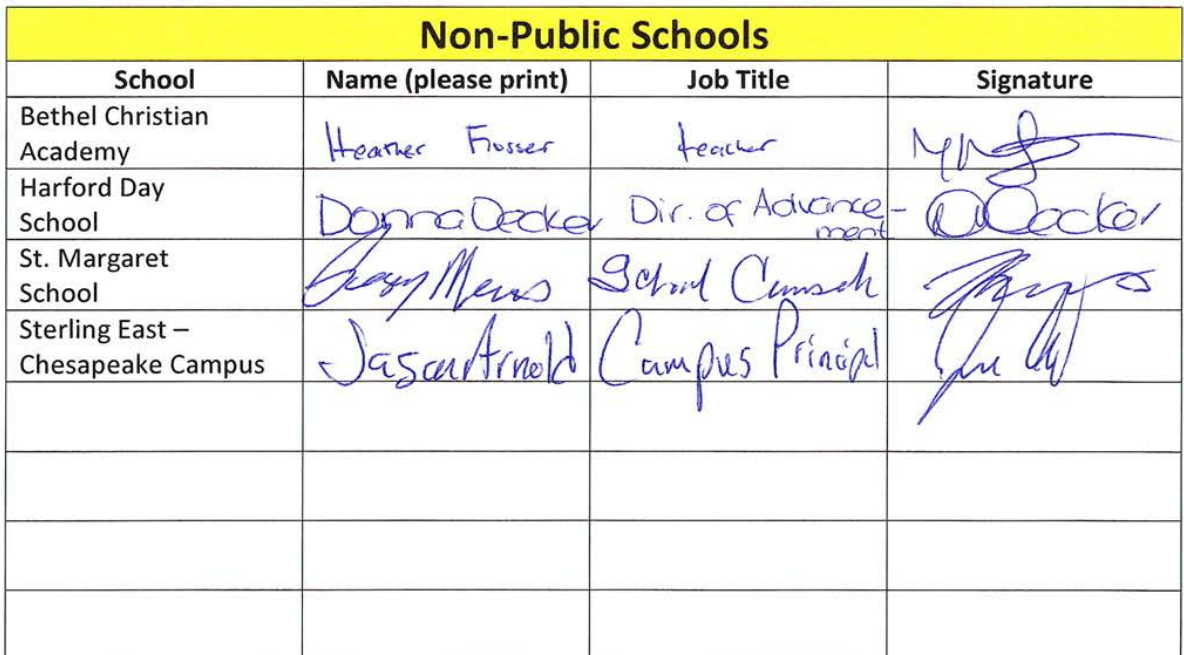 Non-Public Schools
School Name (please print) Job Title Signature
Bethel Christian
Academy
Heather teacher
Harford Day
School
Donna Decker Dir. of Advance-
ment
DDecker
St. Margaret
School
School
Sterling East –
Chesapeake Campus
Jason Arnold Campus Principal